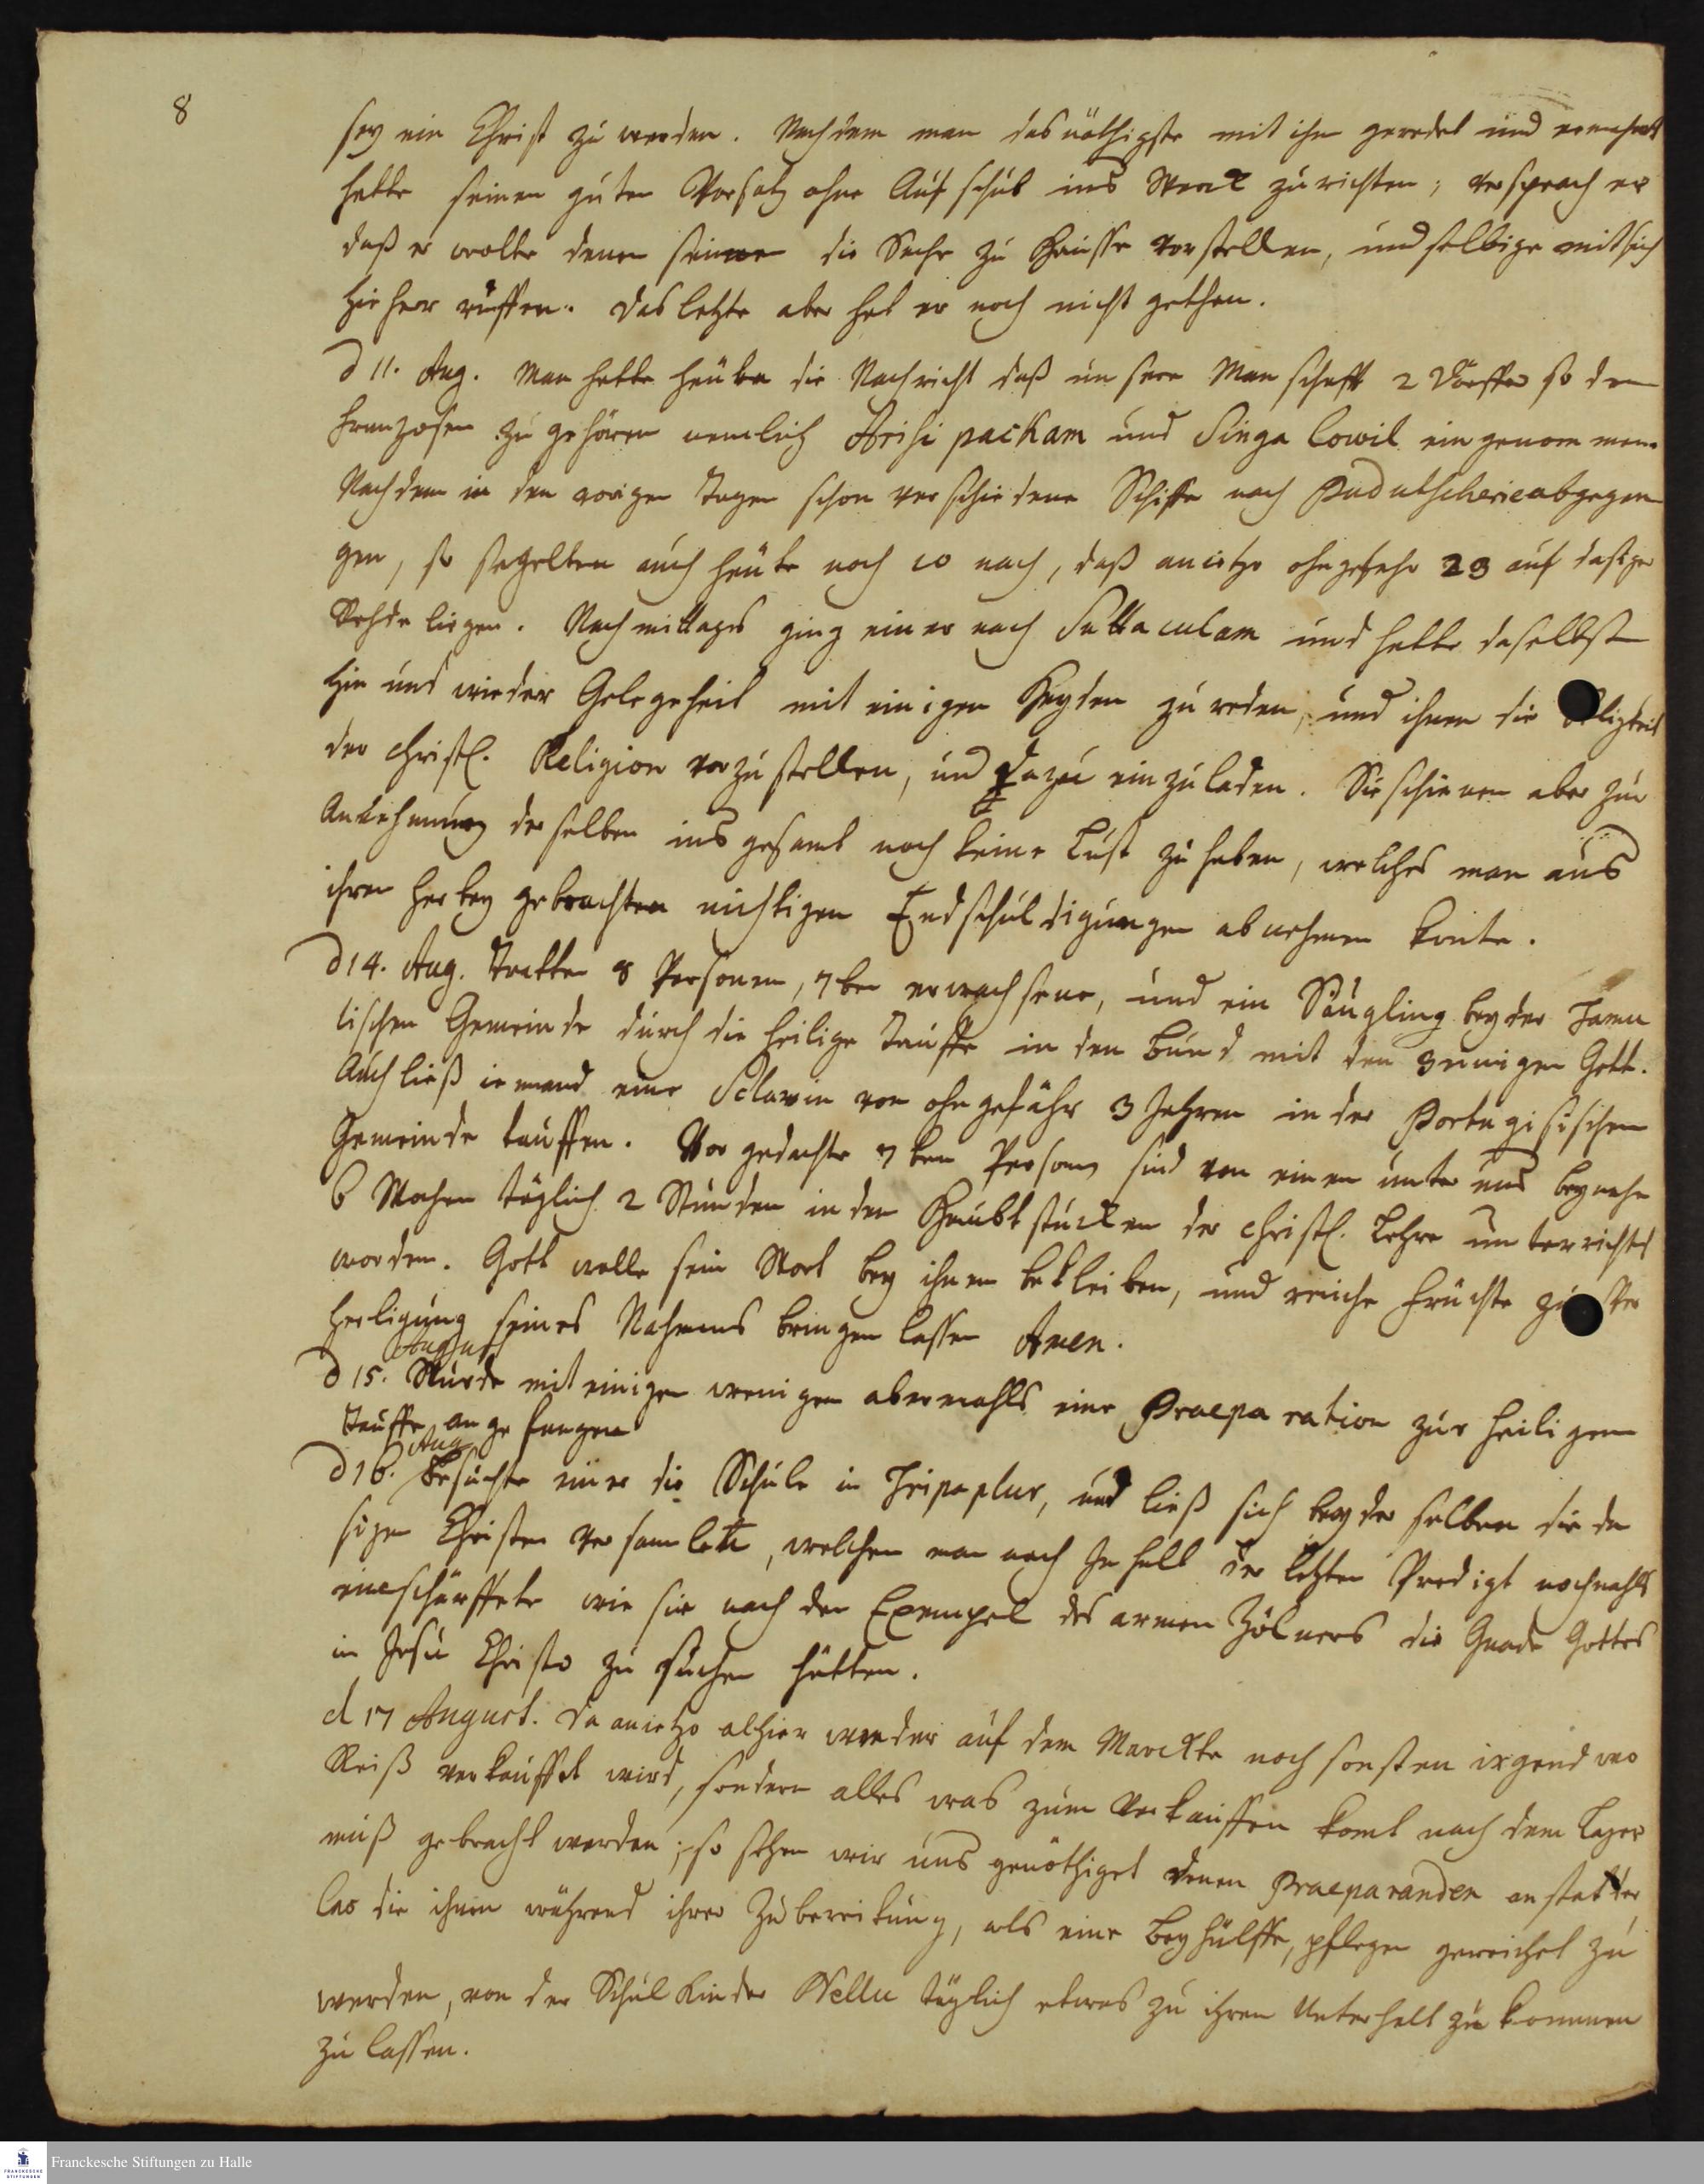 8
sey ein Christ zu werden. Nachdem man das nöthigste mit ihm geredet und ermahnt
hatte seinen guten Vorsatz ohne Aufschub ins Werck zu richten; versprach er
daß er wolte denen seinen die Sache zu Hausse vorstellen, und selbige mit sich
hie herr ruffen. Das letzte aber hat er noch nicht gethan.
d 11. Aug. Man hatte heute die Nachricht daß unsere Manschafft 2 Dörffer so den
Franzosen zu gehören nemlich Arisi packam und Singa Cowil ein genommen.
Nach dem in den vorigen Tagen schon verschiedene Schiffe nach Pudutscherie abgegan
gen, so segelten auch heute noch 10 nach, daß anietzo ohngefehr 23 auf dasiger
Rehde liegen. Nachmittages ging einer nach Sattaculam und hatte daselbst
hin und wieder Gelegeheit mit einigen Heyden zu reden, und ihnen die
der Christl. Religion vorzustellen, und dazu einzuladen. Sie schienen aber zur
Annehmung derselben ins gesamt noch keine Lust zu haben, welches man aus
ihren herbey gebrachten nichtigen Endschuldigungen abnehmen konte.
d 14. Aug. Tratten 8 Personen, 7ben erwachsene, und ein Säugling bey der Tamu
lischen Gemeinde durch die heilige Tauffe in den Bund mit den 3einigen Gott.
Auch ließ iemand eine Sclavin von ohngefähr 3 Jahren in der Portugisischen
Gemeinde tauffen. Vor gedachte 7ben Person sind von einem unter uns beynahe
6 Wochen täglich 2 Stunden in den Haubtstücken der Christl. Lehre unterrichtet
worden. Gott wolle sein Wort bey ihnen bekleiben, und reiche Früchte zur
Heiligung seines Nahmens bringen lassen Amen.
August
d 15. Wurde mit einigen wenigen abermahls eine Praeparation zur heiligen
Tauffe angefangen
Aug
d 16. Besuchte einer die Schule in Tripaplur, und ließ sich bey der selben die da
sigen Christen versamlete, welchen man nach Inhalt der letzten Predigt nochmahls
einschärffete wie sie nach den Exempel des armen Zölners die Gnade Gottes
in Jesu Christo zu suchen hätten.
d 17 August. Da anietzo alhier weder auf dem Marckte noch sonsten irgend wo
Reiß verkauffet wird, sondern alles was zum Verkauffen komt nach dem Lager
muß gebracht werden; so sehen wir uns genöthiget denen Praeparanden anstatt der
Cas die ihnen während ihrer Zubereitung, als eine Beyhülffe, pflegen gereichet zu
werden, von der Schul Kinder Nellu täglich etwas zu ihren Unterhalt zu kommen
zu lassen.
Franckesche Stiftungen zu Halle
FRANCKESCHE STIFTUNGEN